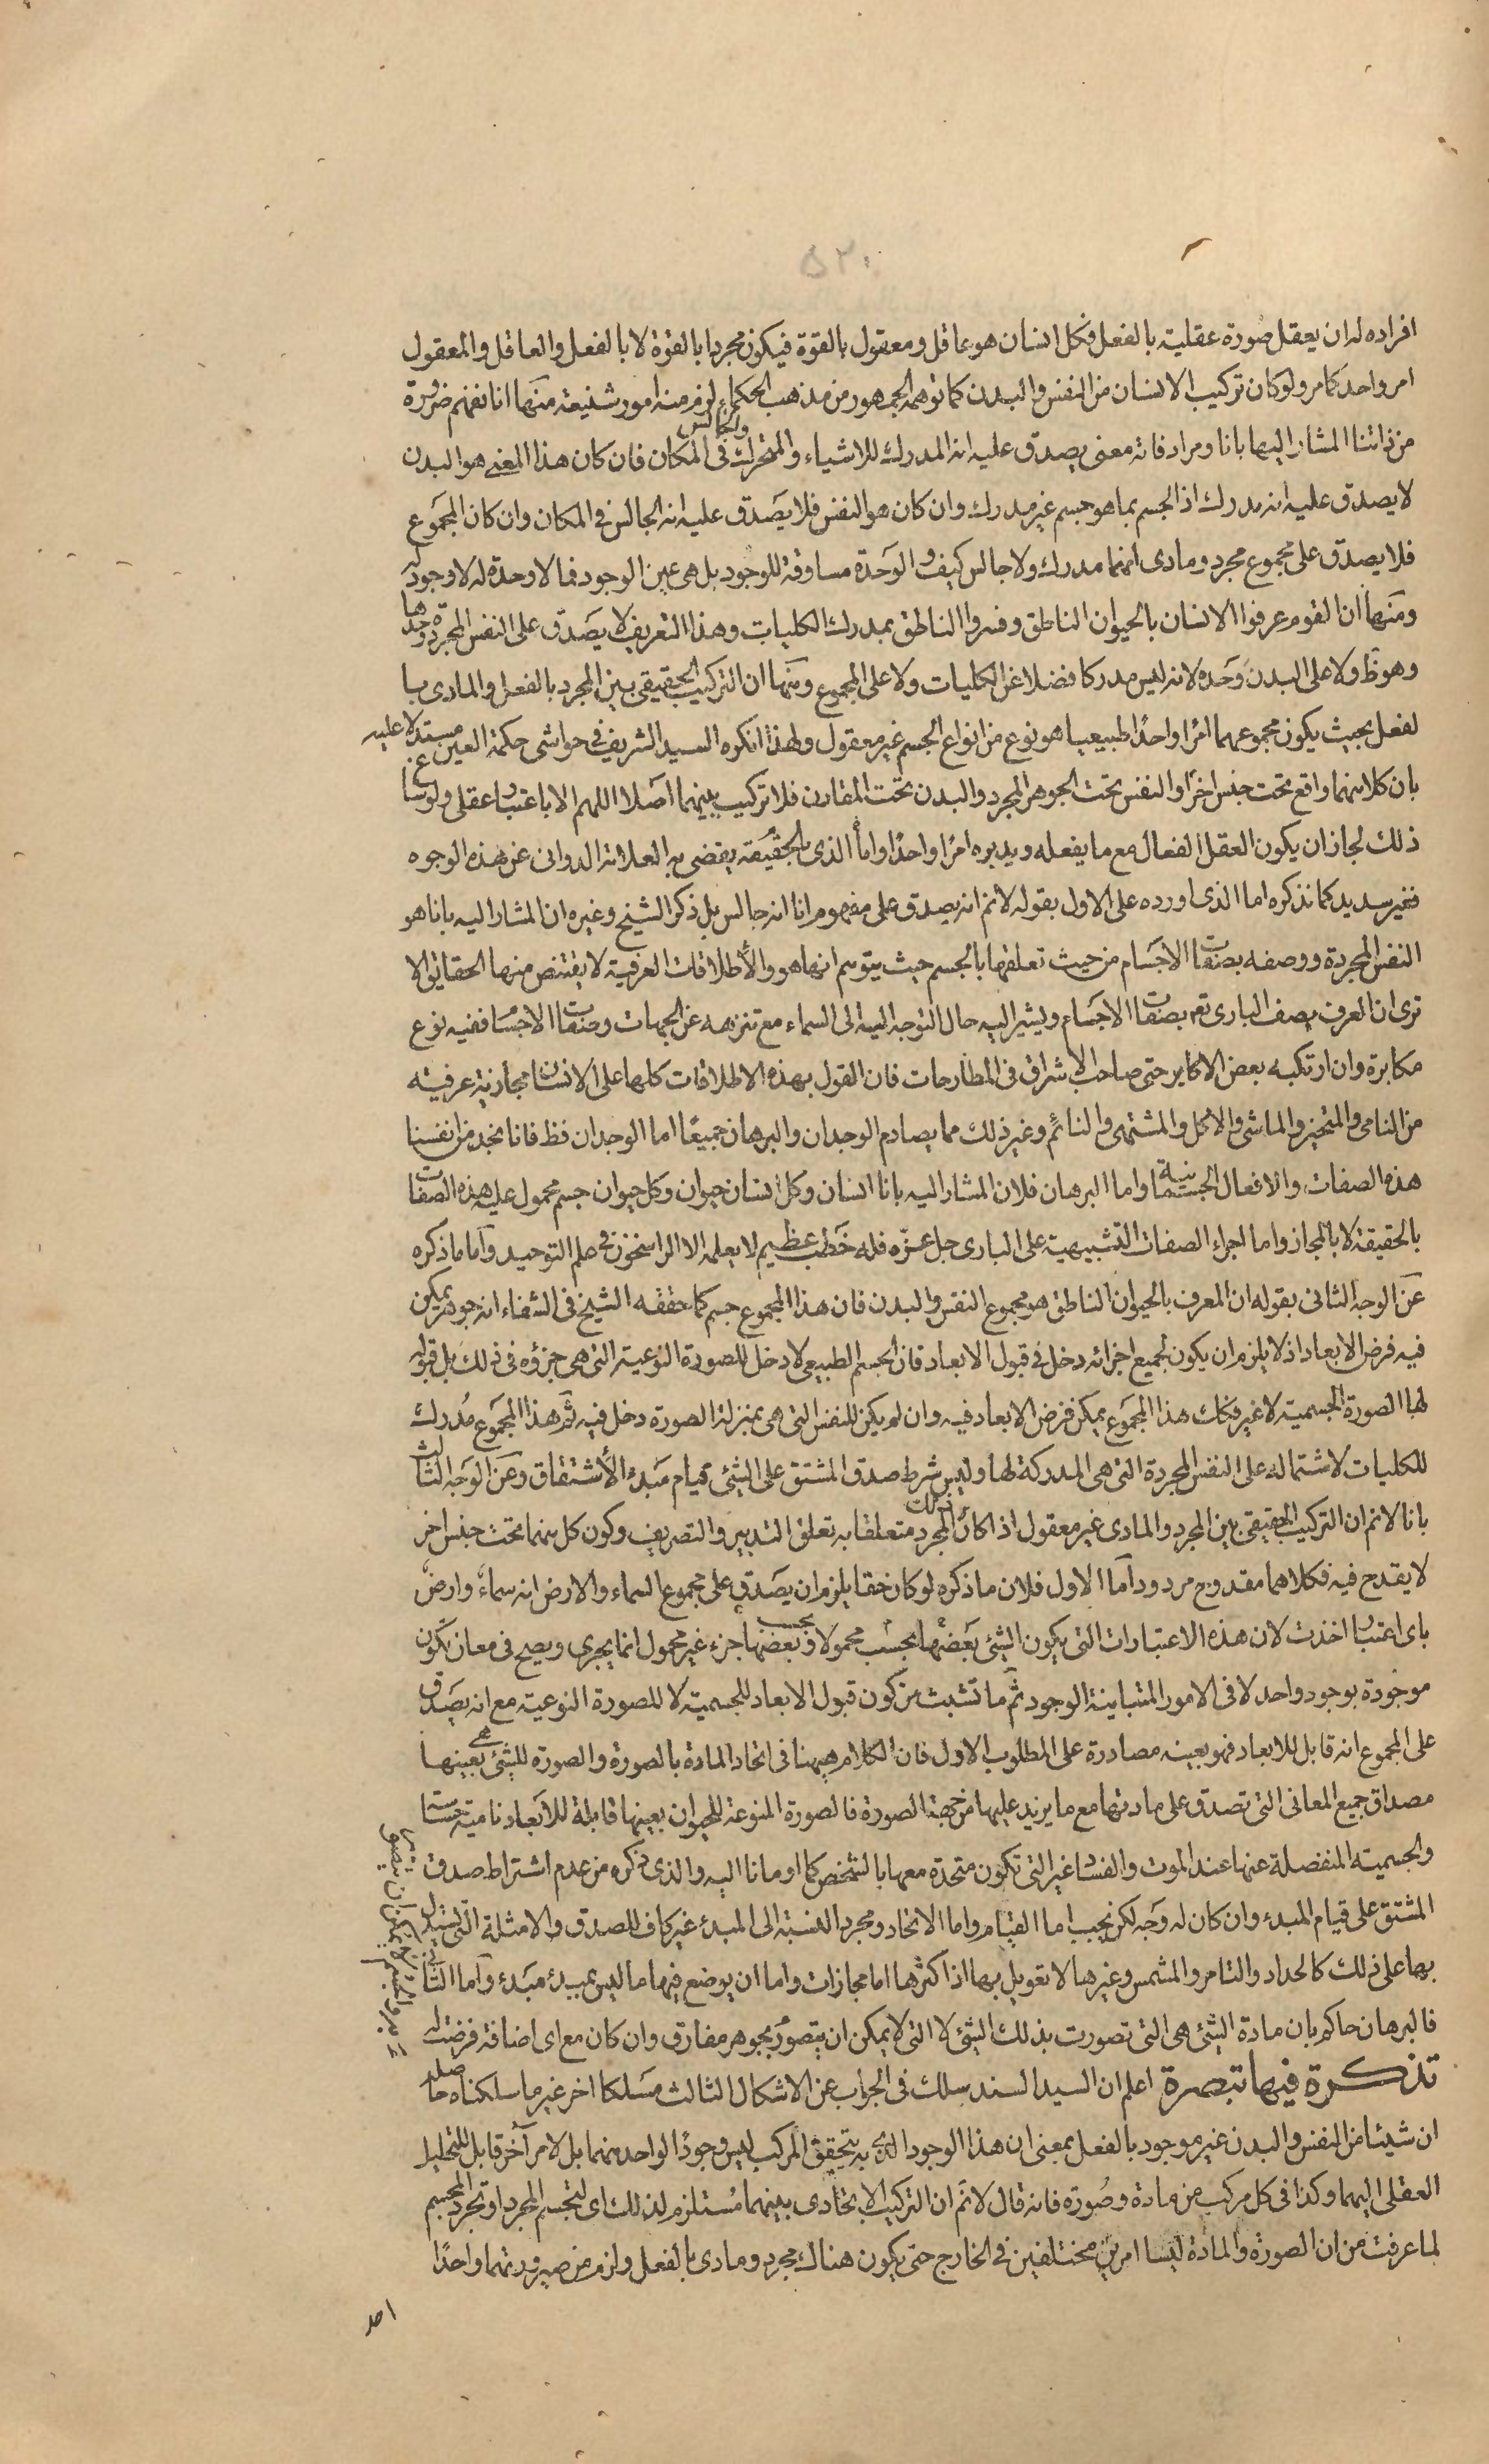 ٥٢٠
افراده له ان يعقل صورة عقلية بالفعل فكل انسان هو عاقل ومعقول بالقوة فيكون مجردا بالقوة لا بالفعل والعاقل والمعقول
امر واحد كما مر ولو كان تركيب الانسان من النفس والبدن كما توهمه الجمهور من مذهب الحكماء لزم منه امور شنيعة منها انا نفهم ضرورة
من ذاتنا المشار اليها بانا ومرادفاته معنى يصدق عليه انه المدرك للاشياء والمتحرك والجالس فى المكان فان كان هذا المعنى هو البدن
لا يصدق عليه انه مدرك اذ الجسم بما هو جسم غير مدرك وان كان هو النفس فلا يصدق عليه انه الجالس فى المكان وان كان المجموع
فلا يصدق على مجموع مجرد ومادى انهما مدرك ولا جالس كيف والوحدة مساوقة للوجود بل هى عين الوجود فما لا وحدة له لا وجود له
ومنها ان القوم عرفوا الانسان بالحيوان الناطق وفسروا الناطق بمدرك الكليات وهذا التعريف لا يصدق على النفس المجردة وحدها
وهو ظ ولا على البدن وحده لانه ليس مدركا فضلا عن الكليات ولا على المجموع ومنها ان التركيب الحقيقى بين المجرد بالفعل والمادى با
لفعل بحيث يكون مجموعهما امرا واحدا طبيعيا هو نوع من انواع الجسم غير معقول ولهذا انكره السيد الشريف فى حواشى حكمة العين مستدلا عليه
بان كلا منهما واقع تحت جنس اخر والنفس تحت الجوهر المجرد والبدن تحت المقارن فلا تركيب بينهما اصلا اللهم الا باعتبار عقلى ولو ساغ
ذلك لجاز ان يكون العقل الفعال مع ما يفعله ويدبره امرا واحدا واما الذى بالحقيقة يقضى به العلامة الدوانى عن هذه الوجوه
فغير سديد كما نذكره اما الذى اورده على الاول بقوله لا نم انه يصدق على مفهوم انا انه جالس بل ذكر الشيخ وغيره ان المشار اليه بانا هو
النفس المجردة ووصفه بصفات الاجسام من حيث تعلقها بالجسم حيث يتوسم انها هو والاطلاقات العرفية لا يقتنص منها الحقايق الا
ترى ان العرف يصف البارى تع بصفات الاجسام ويشير اليه حال التوجه اليه الى السماء مع تنزهه عن الجهات وصفات الاجسام ففيه نوع
مكابرة وان ارتكبه بعض الاكابر حتى صاحب الاشراق فى المطارحات فان القول بهذه الاطلاقات كلها على الانسان مجازية عرفية
من النامى والمتحيز والماشى والاكل والمشتهى والنائم وغير ذلك مما يصادم الوجدان والبرهان جميعا اما الوجدان فظ فانا نجد من انفسنا
هذه الصفات والافعال الجسمانية واما البرهان فلان المشار اليه بانا انسان وكل انسان حيوان وكل حيوان جسم محمول عليه هذه الصفات
بالحقيقة لا بالمجاز واما اجراء الصفات التشبيهية على البارى جل عزه فله خطب عظيم لا يعلمه الا الراسخون فى علم التوحيد واما ما ذكره
عن الوجه الثانى بقوله ان المعرف بالحيوان الناطق هو مجموع النفس والبدن فان هذا المجموع جسم كما حققه الشيخ فى الشفاء انه جوهر يمكن
فيه فرض الابعاد اذ لا يلزم ان يكون لجميع اجزائه دخل فى قبول الابعاد فان الجسم الطبيعى لا دخل للصورة النوعية التى هى جزؤه فى ذلك بل قبوله
لها الصورة الجسمية لا غير فكك هذا المجموع يمكن فرض الابعاد فيه وان لم يكن للنفس التى هى بمنزلة الصورة دخل فيه ثم هذا المجموع مدرك
للكليات لاشتماله على النفس المجردة التى هى المدركة لها وليس شرط صدق المشتق على الشئ قيام مبدء الاشتقاق وعن الوجه الثالث
بانا لا نم ان التركيب الحقيقى بين المجرد والمادى غير معقول اذا كان ذلك المجرد متعلقا به تعلق التدبير والتصريف وكون كل منهما تحت جنس اخر
لا يقدح فيه فكلاهما مقدوح مردود اما الاول فلان ما ذكره لو كان حقا يلزم ان يصدق على مجموع السماء والارض انه سماء وارض
باى اعتبار اخذت لان هذه الاعتبارات التى يكون الشئ بعضها بحسب محمولا وبحسب بعضها جزء غير محمول انما يجرى ويصح فى معان تكون
موجودة بوجود واحد لا فى الامور المتباينة الوجود ثم ما تشبث من كون قبول الابعاد للجسمية لا للصورة النوعية مع انه يصدق
على المجموع انه قابل للابعاد فهو بعينه مصادرة على المطلوب الاول فان الكلام ههنا فى اتحاد المادة بالصورة والصورة للشئ هى بعينها
مصداق جميع المعانى التى تصدق على مادتها مع ما يزيد عليها من جهة الصورة فالصورة المنوعة للحيوان بعينها قابلة للابعاد نامية حساسة
والجسمية المنفصلة عنها عند الموت والفساد غير التى تكون متحدة معها بالشخص كما اومانا اليه والذى ذكره من عدم اشتراط صدق
المشتق على قيام المبدء وان كان له وجه لكن يجب اما القيام واما الاتحاد ومجرد النسبة الى المبدء غير كاف للصدق والامثلة التى يستدل
بها على ذلك كالحداد والتامر والمشمس وغيرها لا تعويل بها اذ اكثرها اما مجازات واما ان يوضع فيها ما ليس بمبدء مبدء واما الثانى
فالبرهان حاكم بان مادة الشئ هى التى تصورت بذلك الشئ لا التى لا يمكن ان يتصور بجوهر مفارق وان كان مع اى اضافة فرضت له
تذكرة فيها تبصرة اعلم ان السيد السند سلك فى الجواب عن الاشكال الثالث مسلكا اخر غير ما سلكناه حاصله
ان شيئا من النفس والبدن غير موجود بالفعل بمعنى ان هذا الوجود الذى به يتحقق المركب ليس وجودا لواحد منهما بل لامر آخر قابل للتحليل
العقلى اليهما وكذا فى كل مركب من مادة وصورة فانه قال لا نم ان التركيب الاتحادى بينهما مستلزم لذلك اى لتجسم المجرد او تجرد المجسم
لما عرفت من ان الصورة والمادة ليسا امرين مختلفين فى الخارج حتى يكون هناك مجرد ومادى بالفعل ولزم من صيرورتهما واحدا